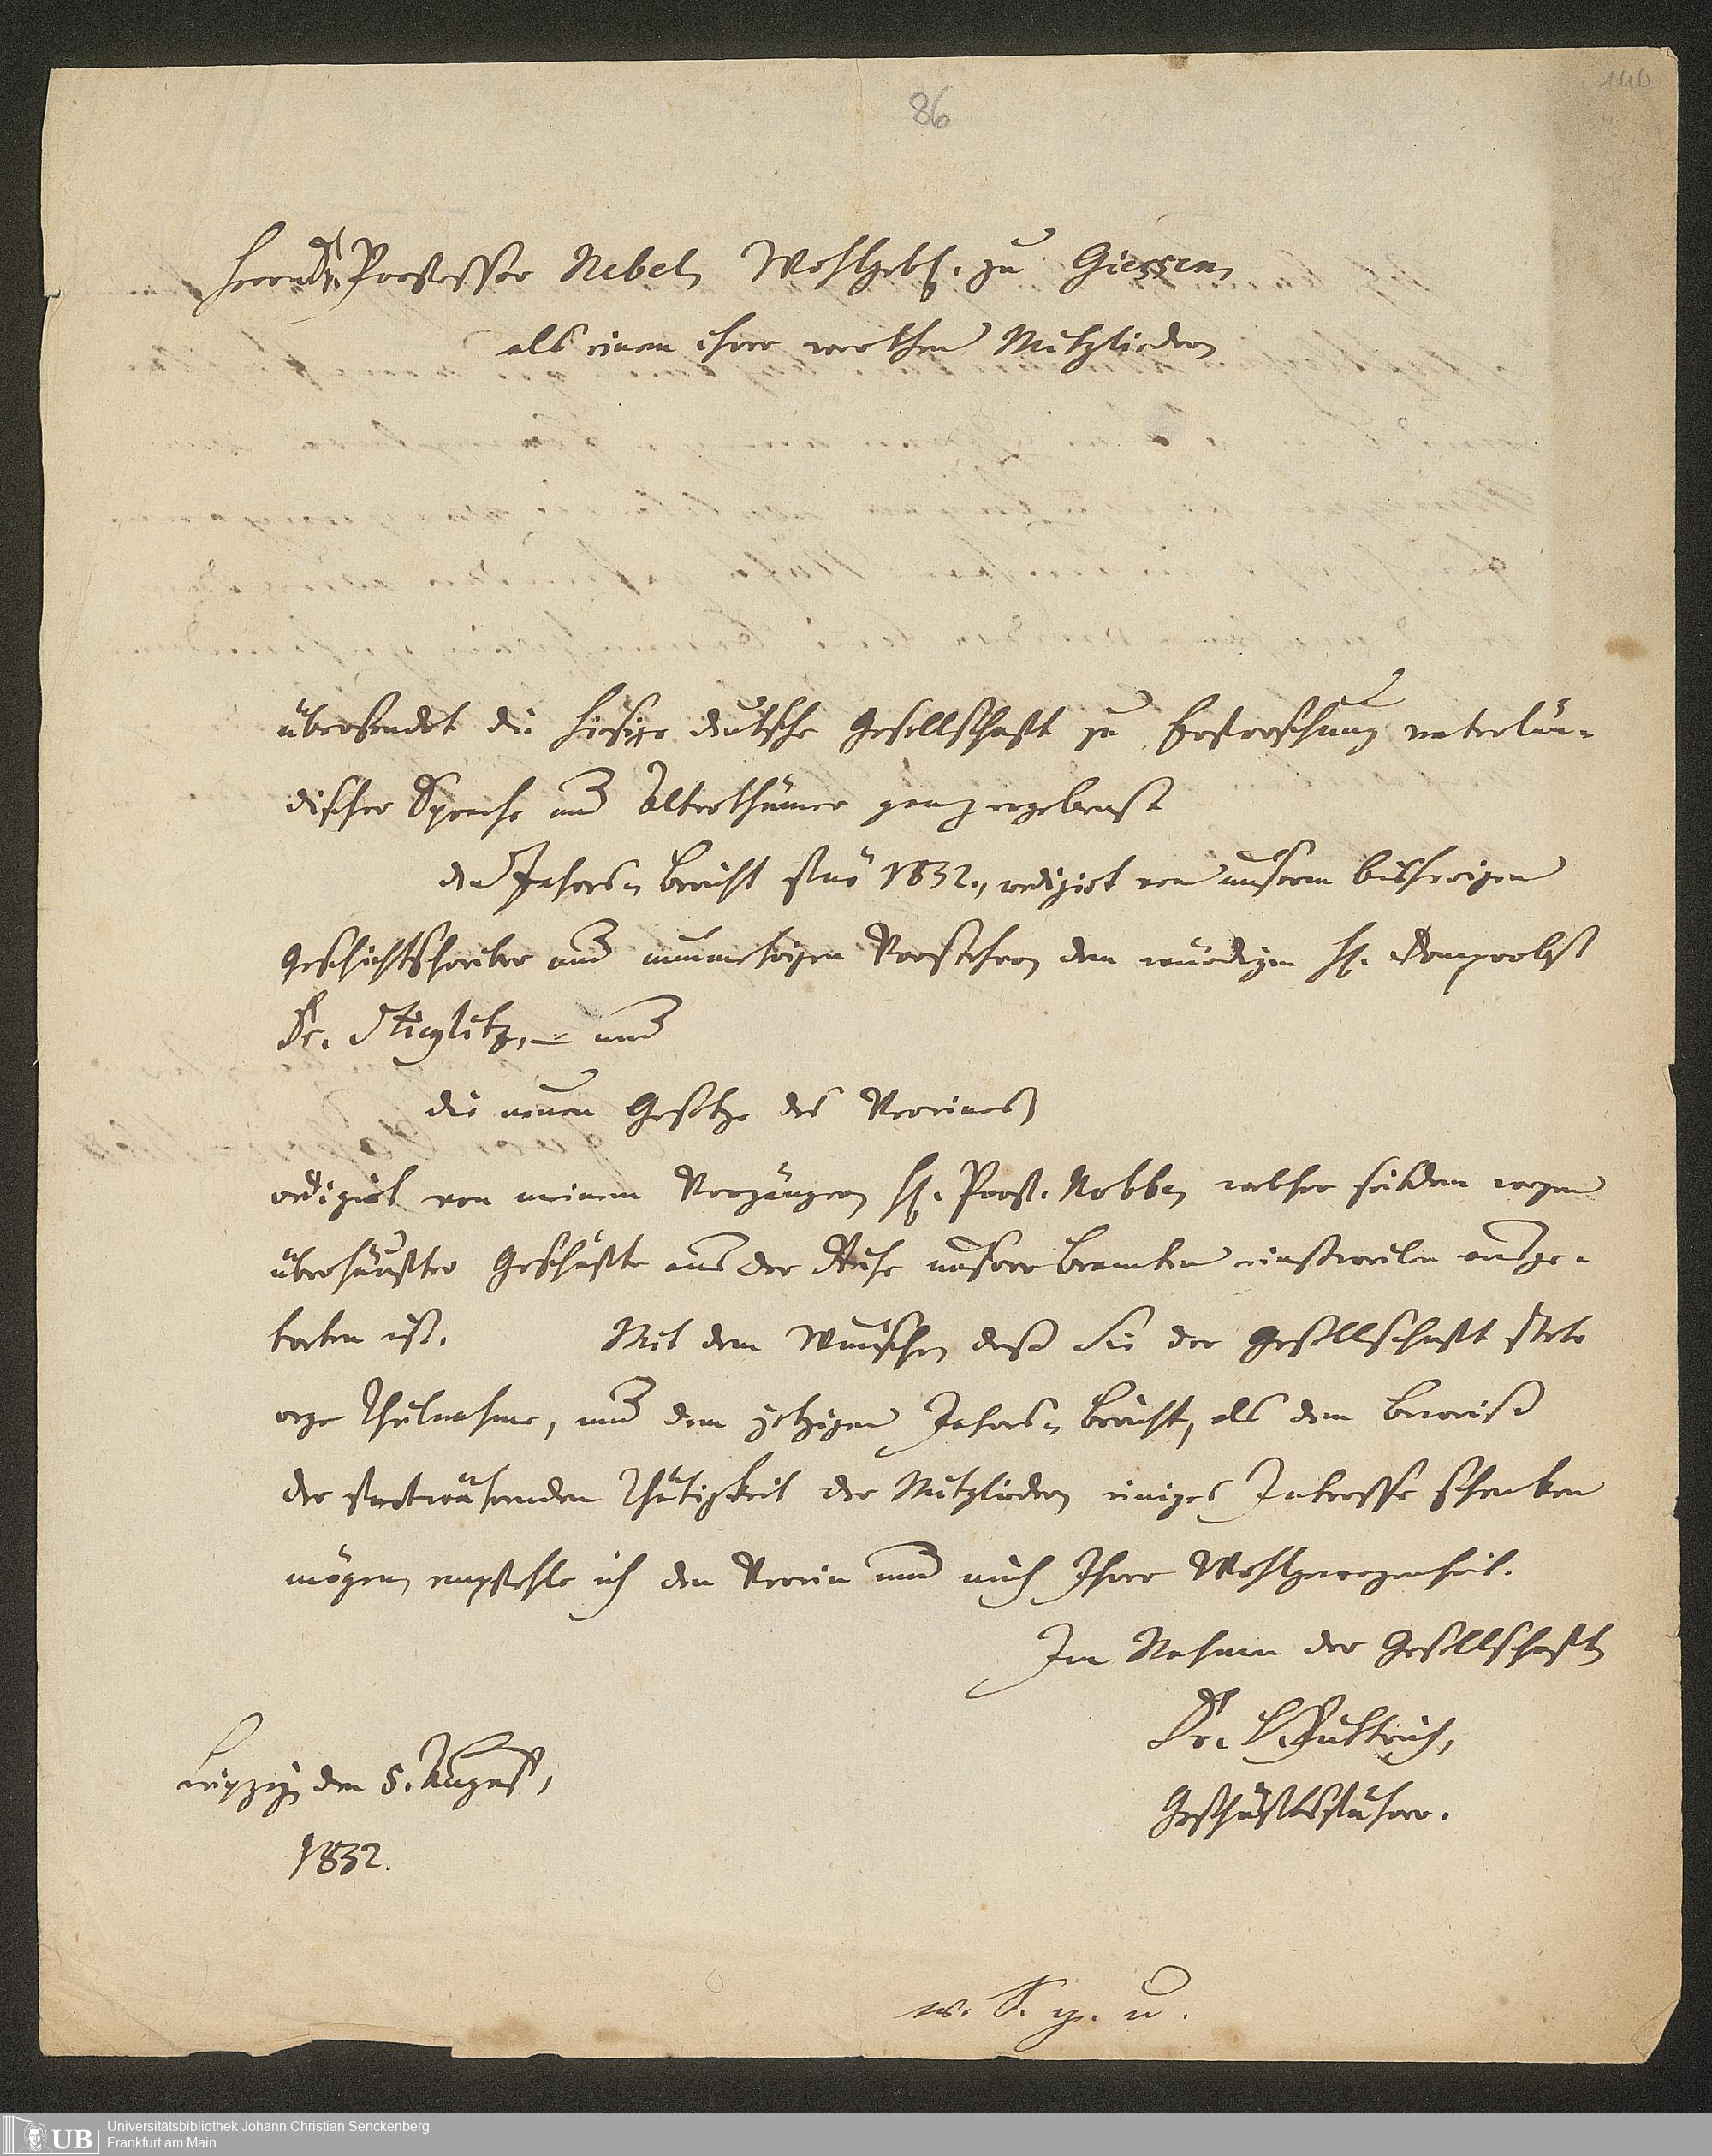 86
140
Herrn Dr. Professor Nebel, Wohlgeb. zu Giessen,
als einem ihrer werthen Mitglieder,
übersendet die hiesige deutsche Gesellschaft zu Erforschung vaterlän-
discher Sprache und Alterthümer ganz ergebenst
den Jahres-Bericht für 1832., redigirt von unserm bisherigen
Geschichtschreiber und nunmehrigen Vorsteher, dem würdigen H. Domprobst
Dr. Stieglitz, – und
die neuen Gesetze des Vereines,
redigirt von meinem Vorgänger, H. Prof. Nobbe, welcher seitdem wegen
überhäufter Geschäfte aus der Reihe unserer Beamten einstweilen ausge-
treten ist. Mit dem Wunsche, daß Sie der Gesellschaft stets
rege Theilnahme, und dem jetzigen Jahres-Bericht, als dem Beweiß
der fortwährenden Thätigkeit der Mitglieder, einiges Interesse schenken
mögen, empfehle ich den Verein und mich Ihrer Wohlgewogenheit.
Im Nahmen der Gesellschaft,
Dr. L. Puttrich,
Geschäftsführer.
Leipzig, den 8. August,
1832.
w. S. g. u.
UB
Universitätsbibliothek Johann Christian Senckenberg
Frankfurt am Main